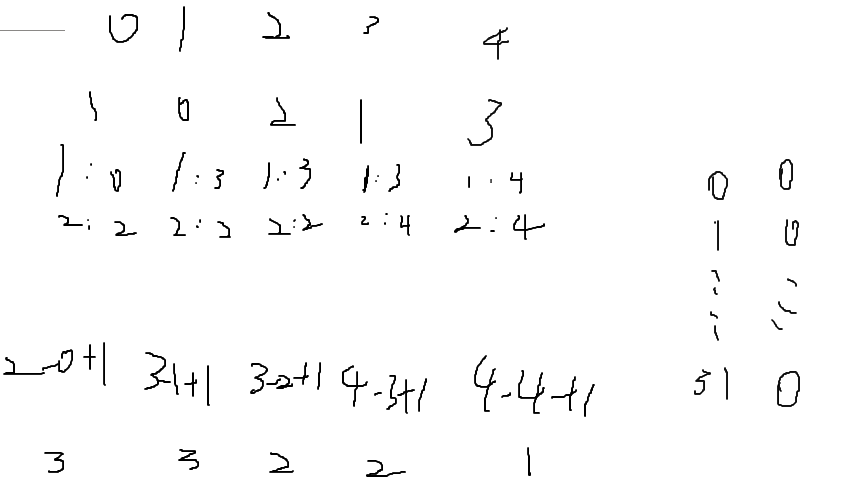 0 1 2 3 4
1 0 2 1 3
1:0 1:3 1:3 1:3 1:4
2:2 2:2 2:2 2:4 2:4
0 0
1 0
: :
: :
31 0
2-0+1 3-1+1 3-2+1 4-3+1 4-4+1
3 3 2 2 1